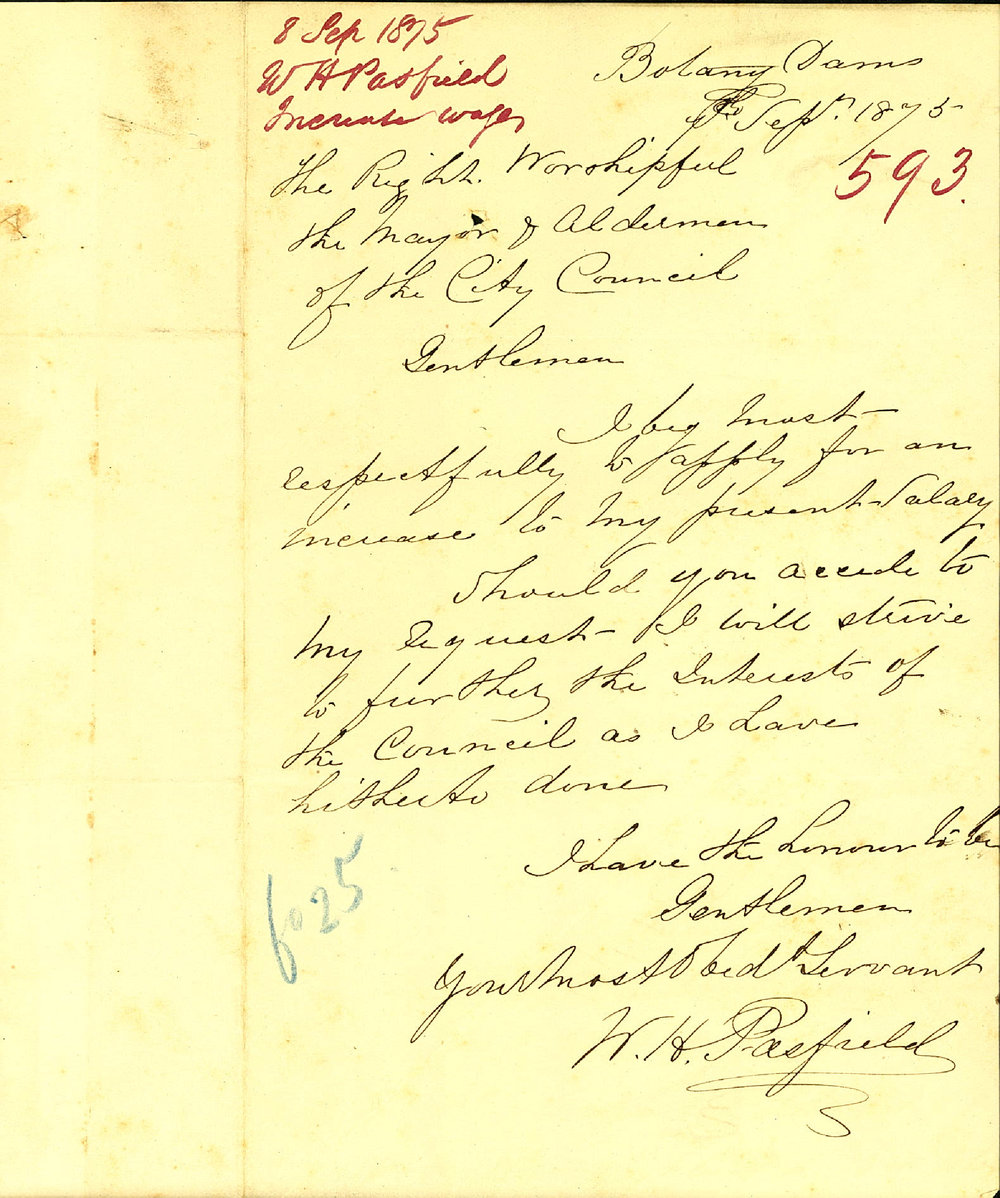 8 Sep 1875
W H Pasfield
Increase wages
Botany Dams
Sepr. 1875
593.
The Right. Worshipful
the Mayor & Aldermen
of the City Council
Gentlemen
I beg most
respectfully to apply for an
increase to my present Salary
Should you accede to
my request I will strive
to further the Interests of
the Council as I have
hitherto done
I have the honour to be
Gentlemen
Your most Obedt Servant
W. H. Pasfield
fo 25